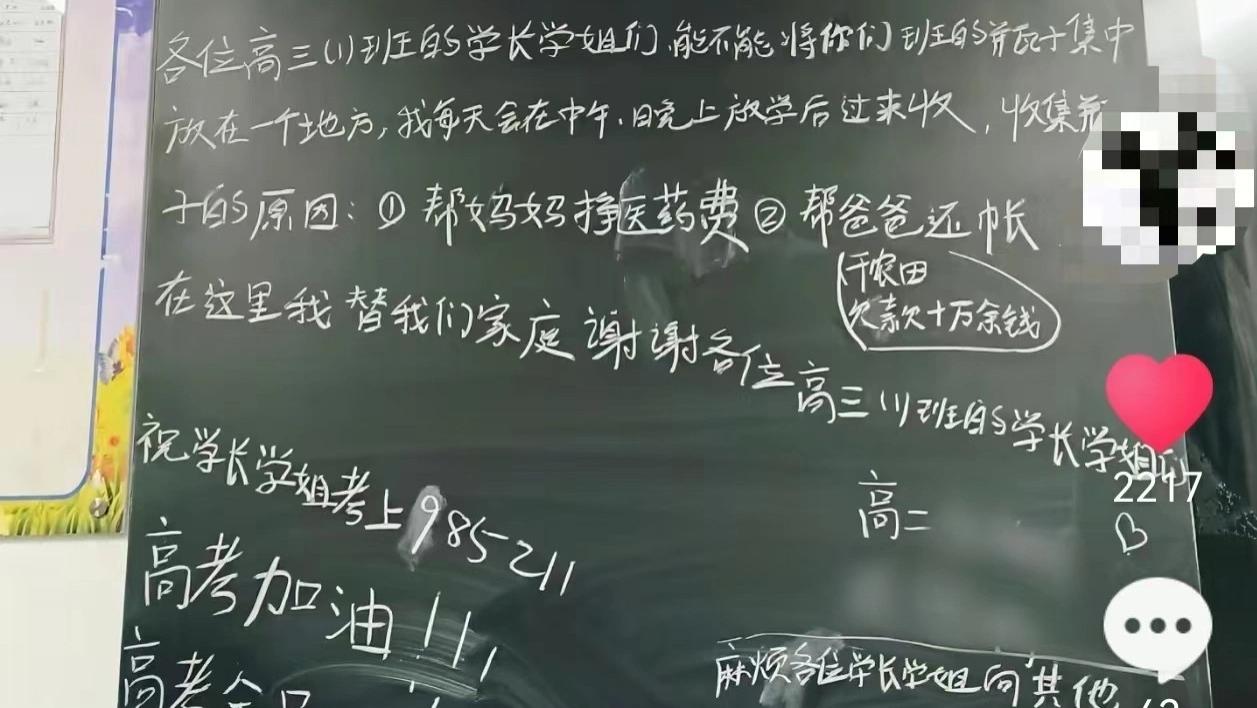 各位高三(1)班的学长学姐们,能不能将你们班的瓶子集中
放在一个地方,我每天会在中午、晚上放学后过来收,收集瓶
子的原因:①帮妈妈挣医药费②帮爸爸还帐
干农田
欠款十万余钱
在这里我替我们家庭谢谢各位高三(1)班的学长学姐们
高二
祝学长学姐考上985211
高考加油!!!
高考
麻烦各位学长学姐向其他
2217